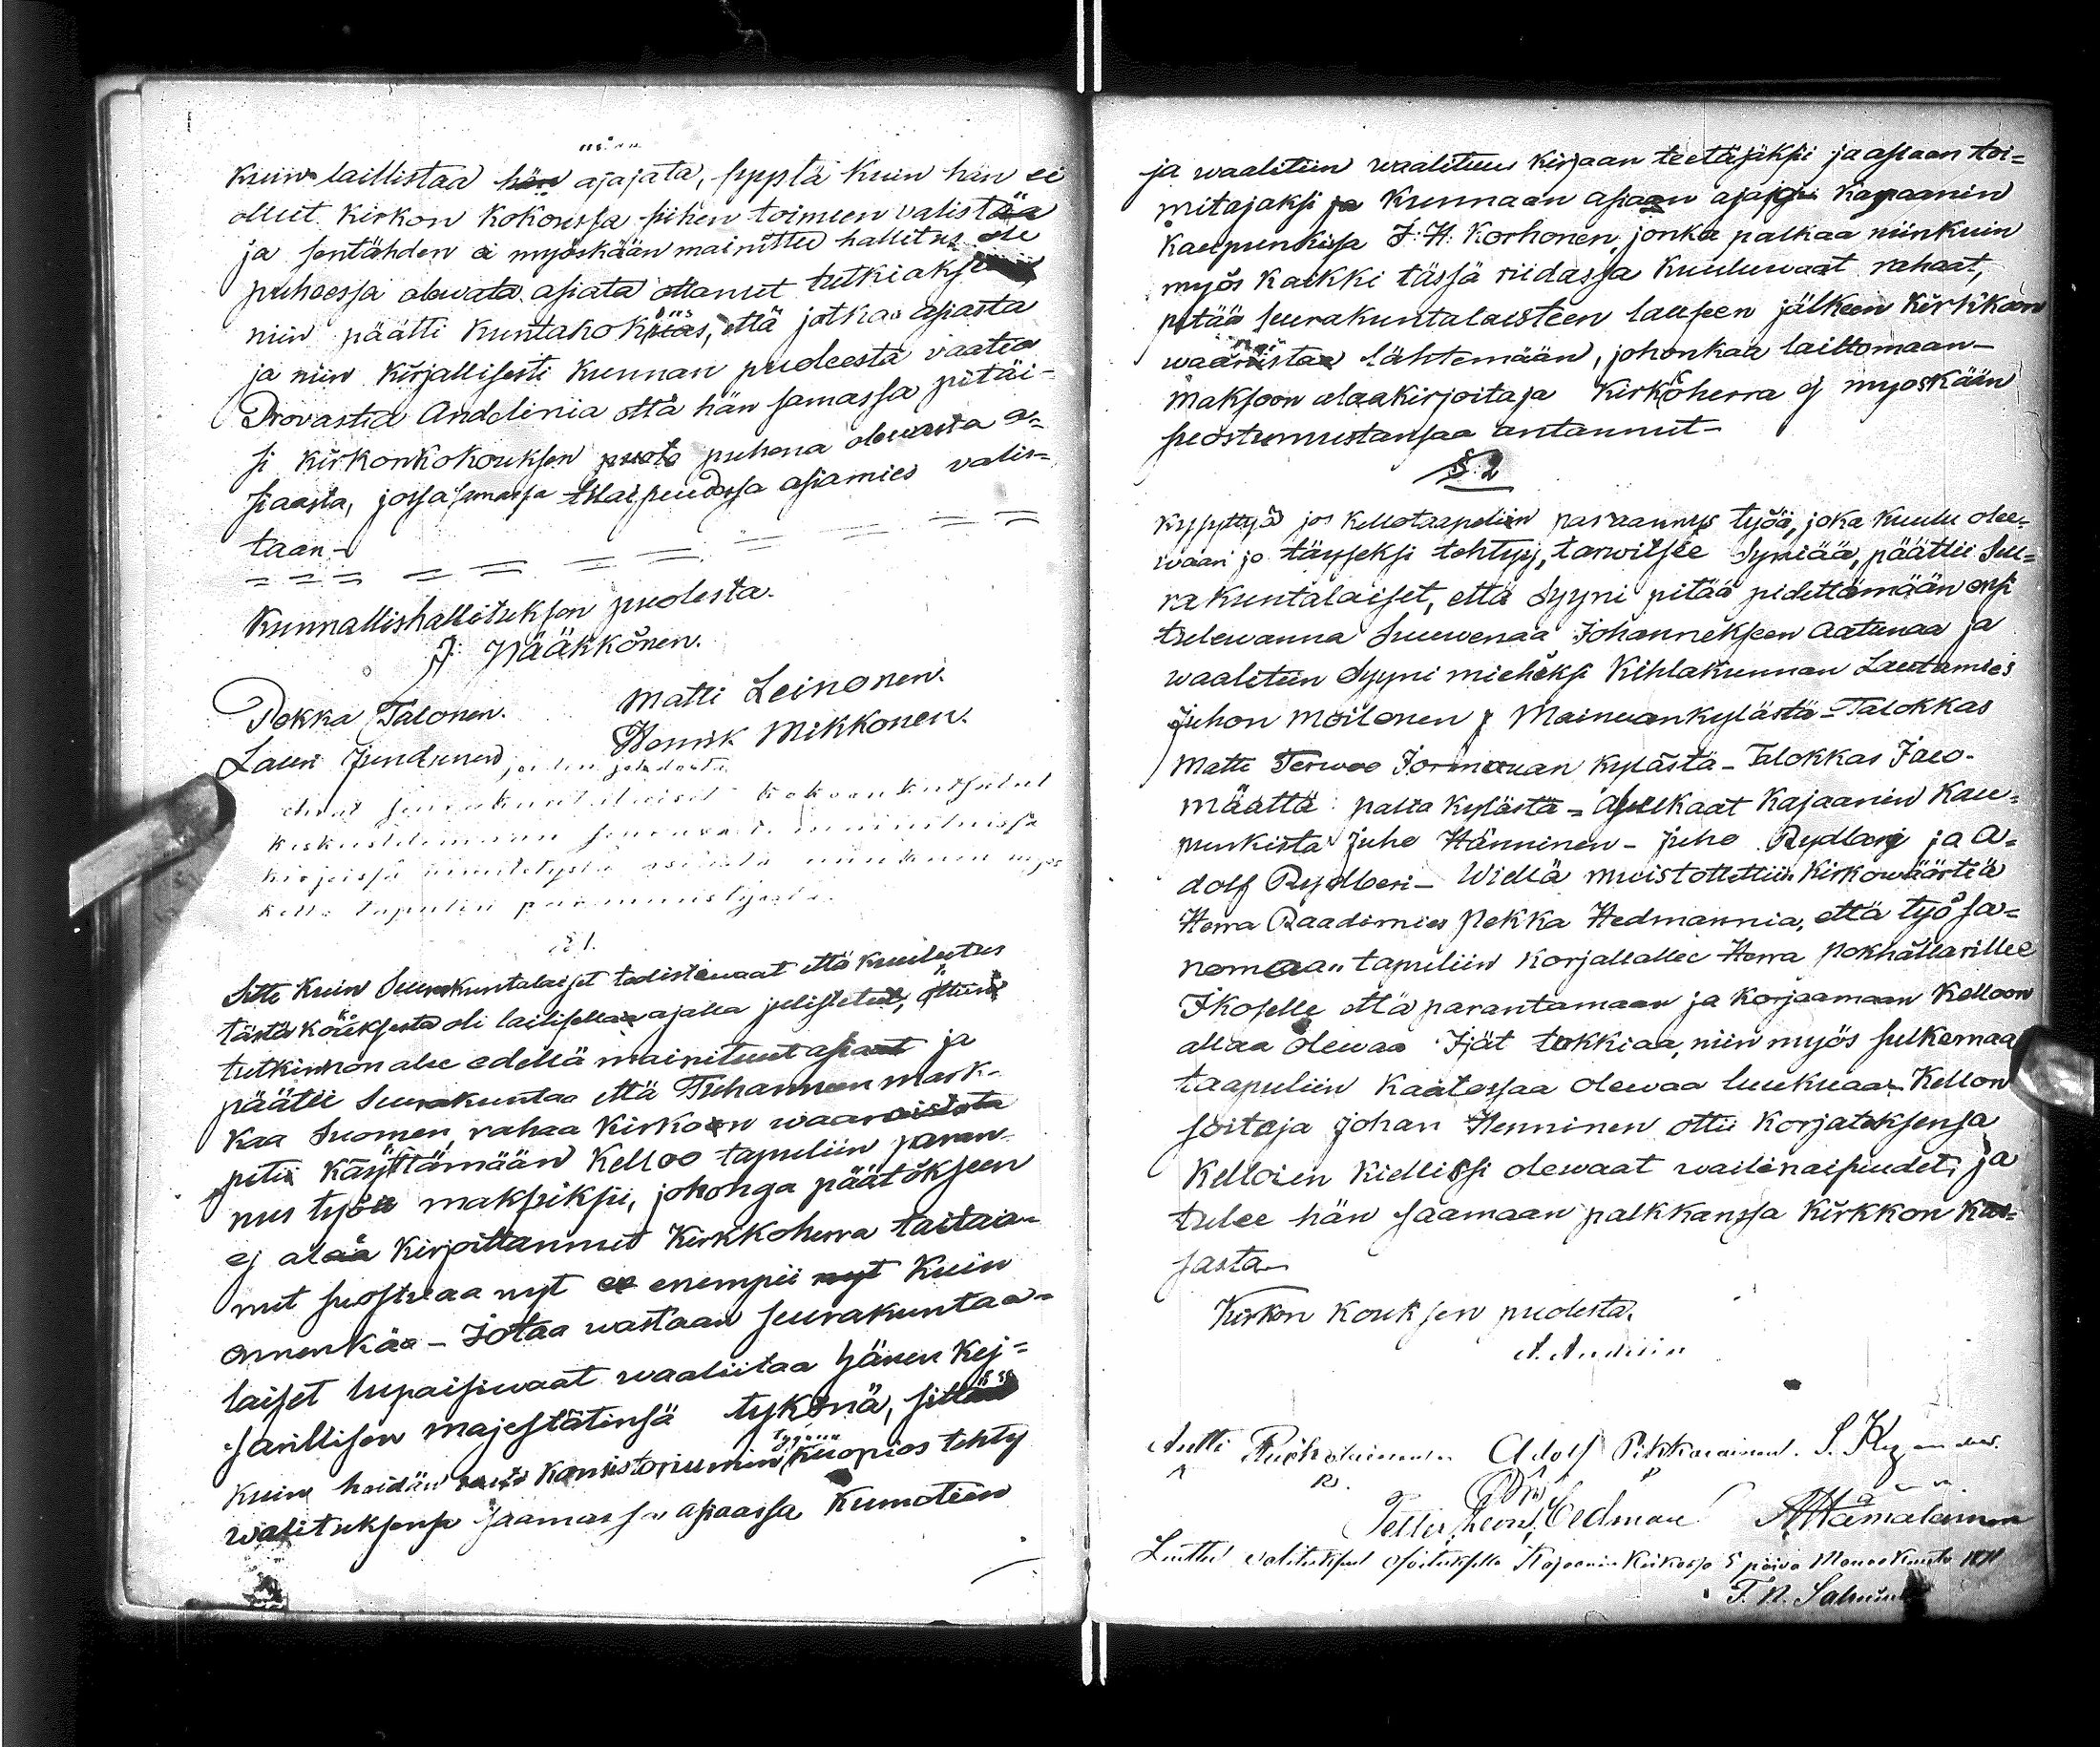 kuin laillistaa hän ajajata, syystä kuin hän ei
ollut kirkon kokouksa siihen toimeen valistaa
ja sentähden ei myöskään mainittu hallitus ole
puheessa olewata asiata ottanut tutkiakse
niin päätti kuntakokous, että jotka asiasta
ja niin kirjallisesti kunnan puolesta vaatia
Provastia Andelinia että hän samassa pitäi-
si kirkonkokouksen puhena olewasta a-
siaasta, jossa samassa tilaisuudessa asiamies valis-
taan-
Kunnallishallituksen puolesta.
J. Nääkkönen.
Pekka Talonen. Matti Leinonen.
Lauri Jundunen, Henrik Mikkonen.
seurakuntalaiset kokoonkutsutut
keskustelemaan seuraavat mainituissa
kirjeissä nimitetystä asiasta niinkuin myös
kello tapulin parannustyöstä.
§ 1.
Sitte kuin Seurakuntalaiset todistewaat että kuulutus
tästä kouksesta oli lailisellaa ajalla julistetut, ottiin
tutkinnon alle edellä mainituut asiaat ja
päätii Seurakuntaa että Tuhanneen mark-
kaa Suomen rahaa Kirkoon waaroista
pitii käyttämään Kelloo tapuliin paran-
nus työn maksuksii, johonga päätökseen
ej alaa kirjoittannut Kirkkoherra taitaa-
nut suostuaa nyt enempii kuin
ennenkää - Jotaa wastaan seurakuntaa-
laiset lupaisiwaat waaliitaa hänen Kej-
sarillisen majestätinsä tykönä, sittä
kuin heidän Konsistoriumin tygönä Kuopios tehty
walituksensa saamassa asiaassa kumotiin
ja waalitiin waalituus kirjaan teetäjäksii ja asiaan toi-
mitajaksi ja Kunnaan asiaan ajajai Kajaanin
Kaupunkissa J: H: Korhonen, jonka palkaa niinkuin
myös kaikki tässä riidassa kuuluwaat rahaat,
pitää seurakuntalaisteen lauseen jälkeen kirkkoon
waaroista lähtemään, johonkaa laittomaan-
maksoon alaakirjoitaja Kirkkoherra ej myöskään
suostumustansaa antannut-
§. 2
Kysyttyä jos Kellotaapeliin paraannus työä, joka kuulu olee-
waan jo täyseksi tehtyy, tarwitsee Syniää, päättii Seu-
rakuntalaiset, että Syyni pitää pidettämään ensi
tulewanna Suuwenaa Johannekseen aatunaa ja
waalitiin Syyni mieheksi Kihlakunnan Lautamies
Juhon Moilonen Mainuankylästä - Talokkas
Matti Terwoo Jormuan kylästä - Talokkas Jaco-
määttä palta kylästä - asukaat Kajaanin kau-
punkista Juho Hänninen - Juho Rydberj ja A-
dolf Rydberi - Wiellä muistottettiin Kirkowäärtiä
Herra Raadimies Pekka Hedmannia, että työ sa-
nomaan tapuliin korjallallee Herra Pokhållarillee
Ikoselle että parantamaan ja korjaamaan Kelloon
allaa olewaa Ijät tukkiaa, niin myös sulkemaa
taapuliin Kaatossaa olewaa luukuaa - Kellon
soitaja Johan Henninen ottii korjataksensa
Kelloien kiellissi olewaat wailinaisuudet, ja
tulee hän saamaan palkkanssa Kirkkon kas-
sasta-
Kirkon kouksen puolesta.
A. Andelin
Antti Adolf Pikkarainen.
Petter Hedman A Hämäläinen
Luettu valituksen osoituksella Kajaanin Kirkossa 5 päivä